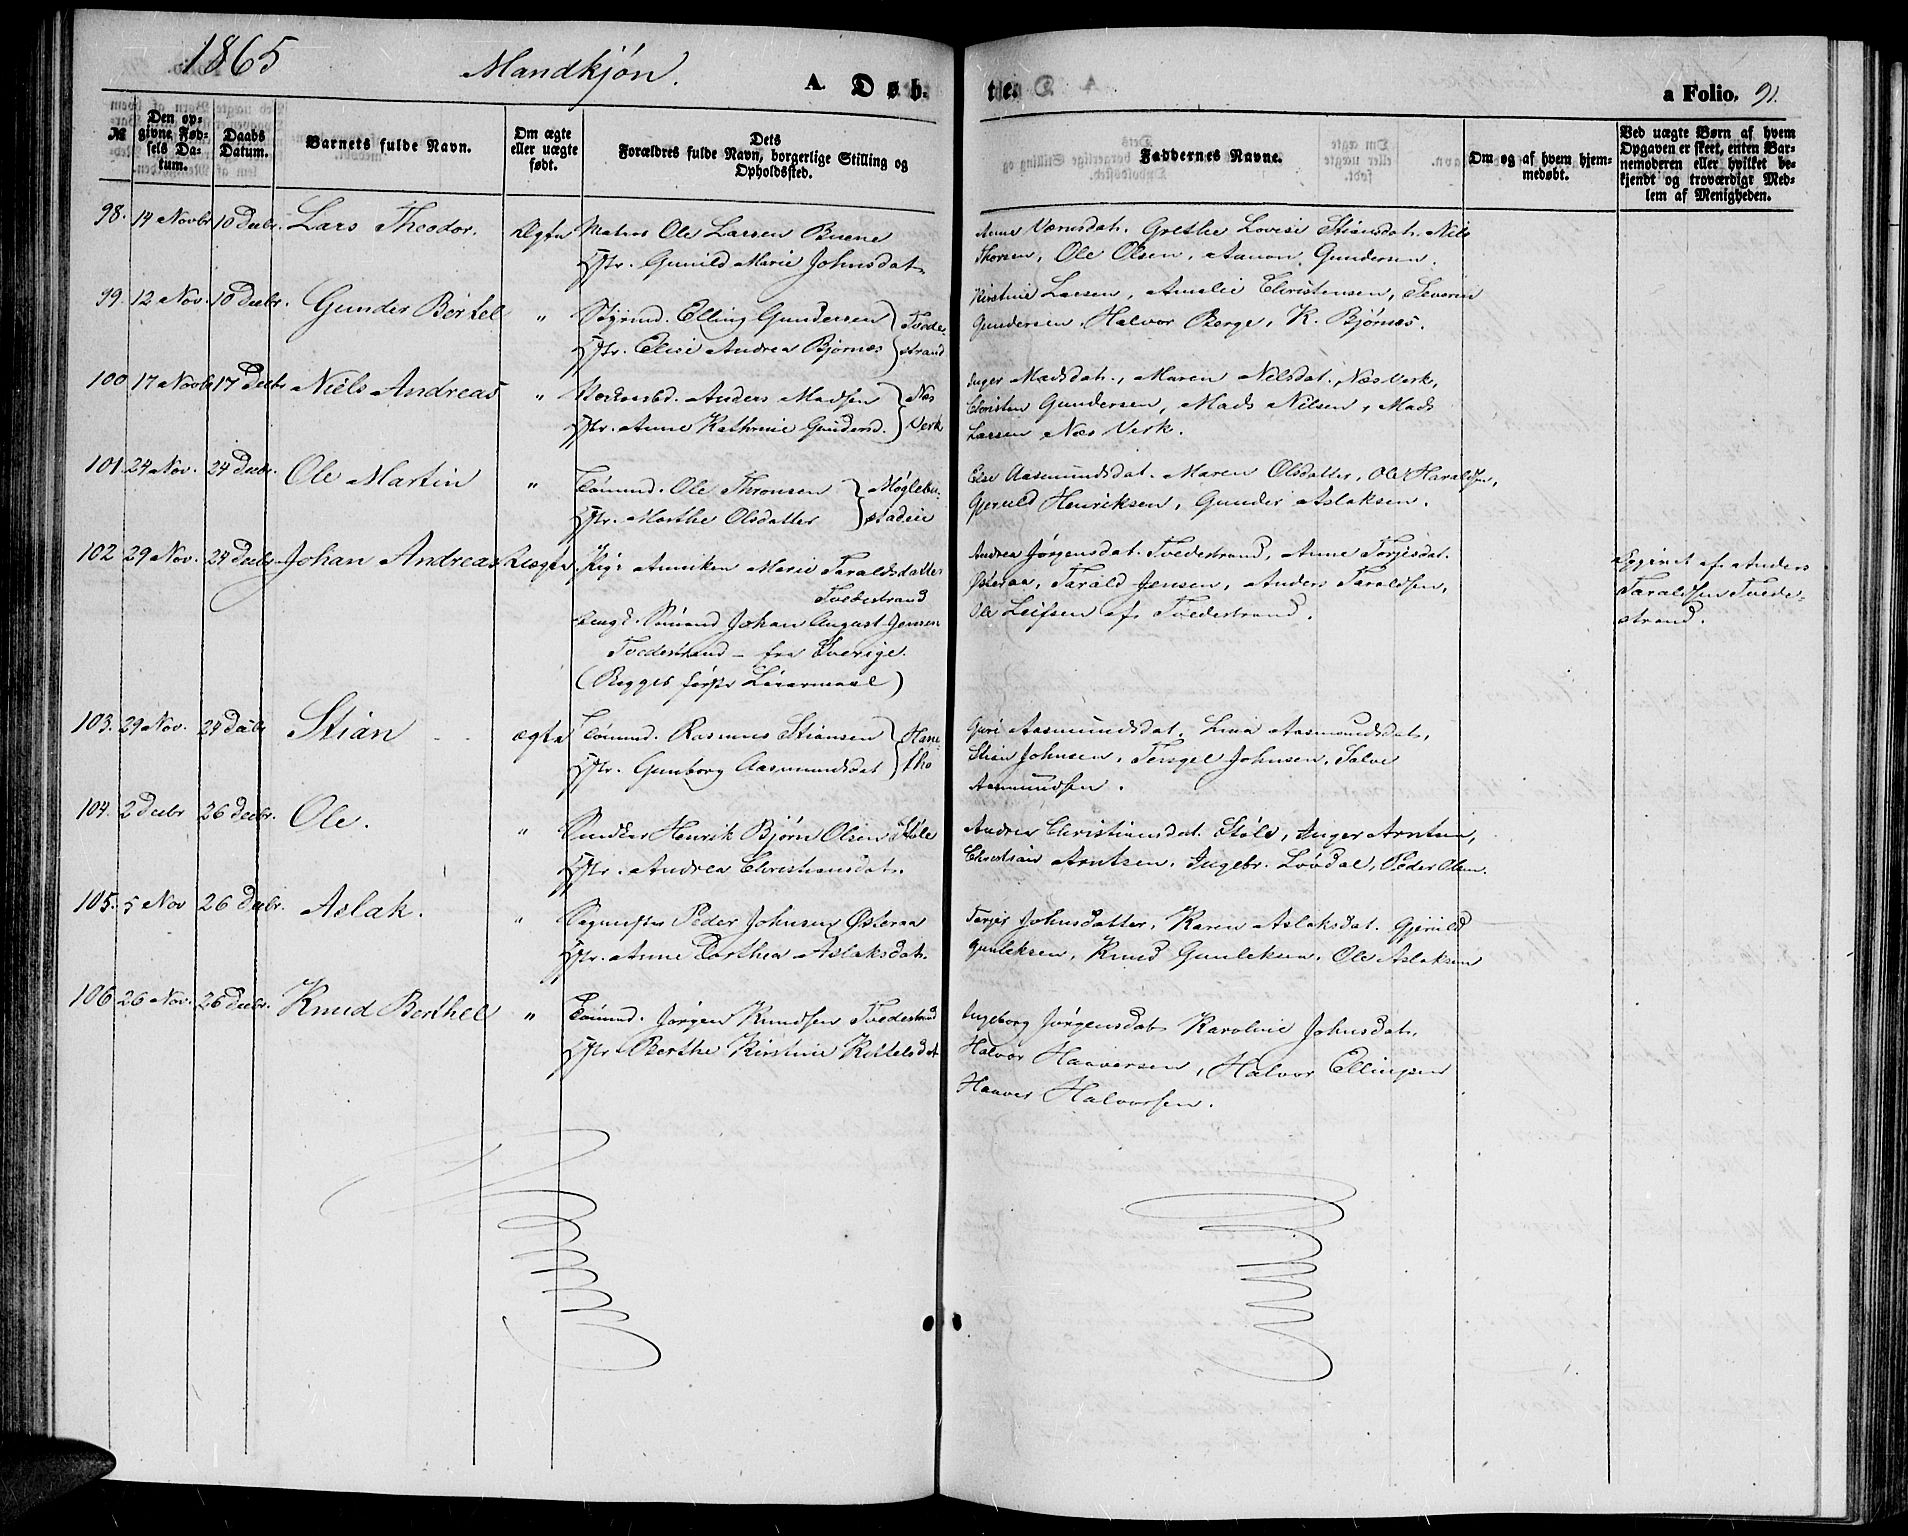 1865 Mandkjøn. A. Døb-
te. a Folio. 91.
№ Den op-givne Fød-sels Da-tum. Daabs Datum. Barnets fulde Navn. Om ægte eller uægte født. Dets Forældres fulde Navn, borgerlige Stilling og Opholdssted.
Faddernes Navne. Om og af hvem hjem-medøbt. Ved uægte Børn af hvem Opgaven er skeet, enten Bar-nemoderen eller hvilket be-kjendt og troværdigt Med-lem af Menigheden.
98. 14 Novbr 10 Decbr. Lars Theodor. Ægte Matros Ole Larsen Buene
Hstr. Gunild Marie Johnsdat.
Anne Værnsdat. Grethe Lovise Stiansdat. Nils
Thorsen, Ole Olsen, Aanon Gundersen.
99. 12 Nov. 10 Decbr. Gunder Bertel " Styrmd. Elling Gundersen } Tvede-
Hstr. Elise Andrea Bjørnæs } strand
Kirstine Larsen, Amalie Christensen, Severin
Gundersen, Halvor Berge, K. Bjørnæs.
100. 17 Novbr 17 Decbr Niels Andreas " Anders Madsen } Næs
Hstr. Anne Kathrine Gundersd. } Verk
Inger Madsdat., Maren Nilsdat. Næs Verk,
Christen Gundersen, Mads Nilsen, Mads
Larsen Næs Verk.
101. 24 Nov. 24 Decbr. Ole Martin " Tømmd. Ole Thronsen } Møglebu-
Hstr. Marthe Olsdatter } stadeie
Else Aasmundsdat. Maren Olsdatter, Ole Haraldsen,
Gjeruld Henriksen, Gunder Aslaksen.
102 29 Nov. 24 Decbr. Johan Andreas Uægte Pige Anniken Marie Taraldsdatter
Tvedestrand
Ungk. Sømand Johan August Jensen
Tvedestrand – fra Sverige.
(Begges første Leiermaal)
Andrea Jørgensdat. Tvedestrand, Anne Torjusdat.
Østeraa, Tarald Jensen, Anders Taraldsen,
Ole Leifsen af Tvedestrand.
Opgivet af Anders
Taraldsen Tvede-
strand.
103. 29 Nov. 24 Decbr Stian ægte Tømmd. Rasmus Stiansen } Hane-
Hstr. Gunborg Aasmundsdat } tho
Guri Aasmundsdat. Lina Aasmundsdat,
Stian Johnsen, Tengel Johnsen, Salve
Aasmundsen.
104. 2 Decbr 26 Decbr. Ole. " Snedker Henrik Bjørn Olsen Støle
Hstr. Andrea Christiansdat.
Andrea Christiansdat. Støle, Inger Arntsen,
Christian Arntsen, Ingebr. Løvdal, Peder Olsen.
105. 5 Nov 26 Decbr. Aslak. " Vognmester Peder Johnsen Østeraa
Hstr. Anne Dorthea Aslaksdat.
Torjer Johnsdatter, Karen Aslaksdat. Gjeruld
Gunleksen, Knud Gunleksen, Ole Aslaksen
106 26 Nov. 26 Decbr. Knud Berthel " Tømmd. Jørgen Knudsen Tvedestrand
Hstr. Berthe Kirstine Kittelsdat
Ingeborg Jørgensdat Karoline Johnsdat,
Halvor Haaversen, Halvor Ellingsen
Haaver Halvorsen.